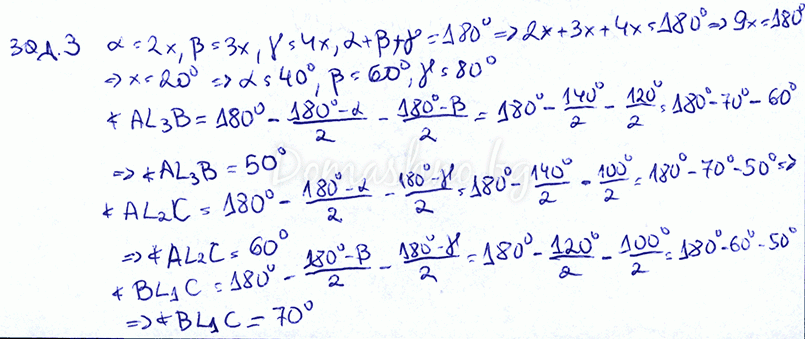 зад.3 α=2x, β=3x, γ=4x, α+β+γ=180° => 2x+3x+4x=180° => 9x=180°
=> x=20° => α=40°, β=60°, γ=80°
∢AL₃B = 180° - (180°-α)/2 - (180°-β)/2 = 180° - 140°/2 - 120°/2 = 180°-70°-60°
=> ∢AL₃B = 50°
∢AL₂C = 180° - (180°-α)/2 - (180°-γ)/2 = 180° - 140°/2 - 100°/2 = 180°-70°-50° =>
=> ∢AL₂C = 60°
∢BL₁C = 180° - (180°-β)/2 - (180°-γ)/2 = 180° - 120°/2 - 100°/2 = 180°-60°-50°
=> ∢BL₁C = 70°
Domashno.bg